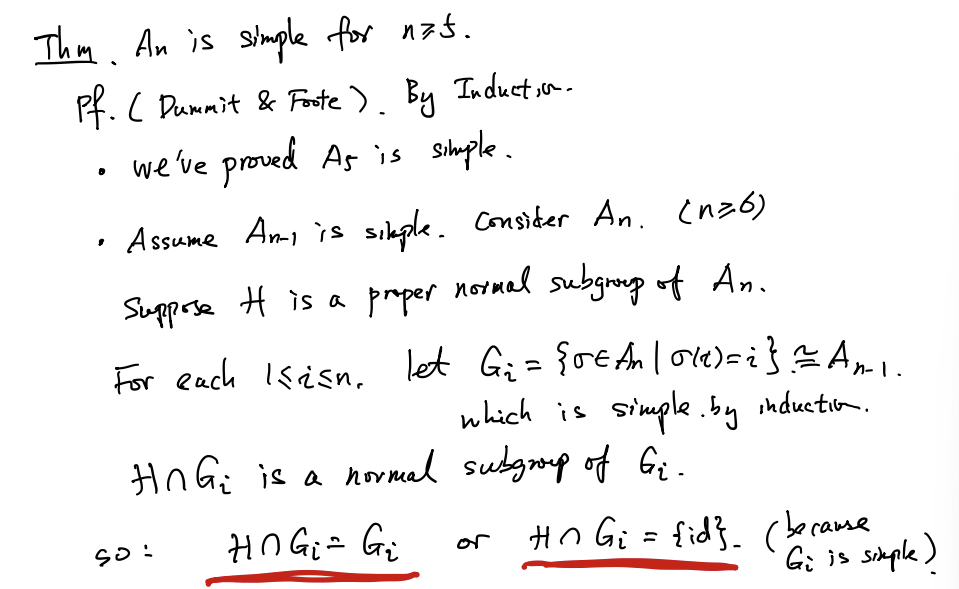 Thm. An is simple for n≥5.
Pf. (Dummit & Foote). By Induction.
• we've proved A5 is simple.
• Assume An-1 is simple. Consider An. (n≥6)
Suppose H is a proper normal subgroup of An.
For each 1≤i≤n, let Gi = {σ∈An | σ(i)=i} ≅ An-1.
which is simple. by induction.
H∩Gi is a normal subgroup of Gi.
so: H∩Gi = Gi or H∩Gi = {id}. (because
Gi is simple)